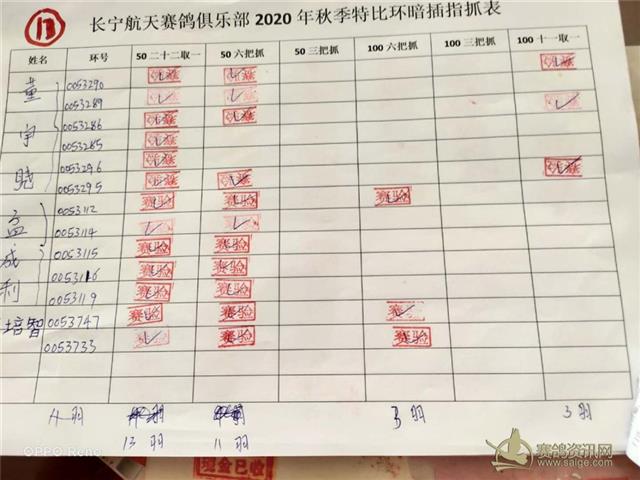 13
长宁航天赛鸽俱乐部 2020 年秋季特比环暗插指抓表
姓名 环号 50 二十二取一 50 六把抓 50 三把抓 100 六把抓 100 三把抓 100 十一取一
董宇晓
0053290
0053289
0053286
0053285
0053296
0053295
孟成利
0053112 赛验 赛验 赛验
0053114
0053115 赛验 赛验
0053116 赛验 赛验
0053119 赛验 赛验
培智
0053747 赛验 赛验 赛
0053733 赛验 赛验
羽 3 羽 3 羽
13 羽 11 羽
现金已收
OPPO Reno
赛鸽资讯网
www.saige.com